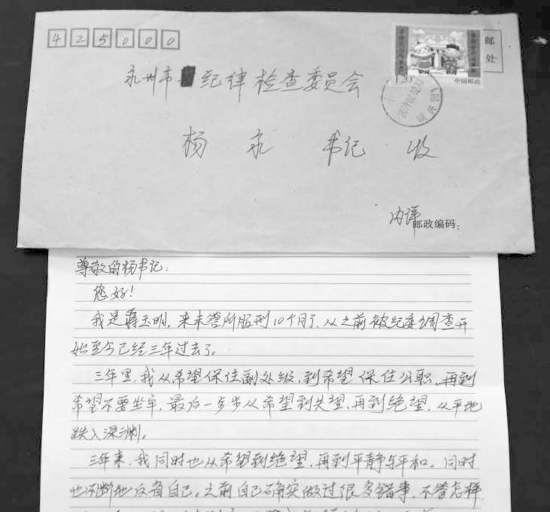 425000
邮
处
中国邮政
永州市 纪律检查委员会
杨永 书记 收
内详
邮政编码:
尊敬的杨书记:
您好!
我是蒋玉明,来未管所服刑10个月了,从之前被纪委调查开
始至今已经三年过去了。
三年里,我从希望保住副处级,到希望保住公职,再到
希望不要坐牢,最后一步步从希望到失望,再到绝望,从平地
跌入深渊。
三年来,我同时也从希望到绝望,再到平静与平和。同时
也不断地反省自己。之前自己确实做过很多错事,不管怎样